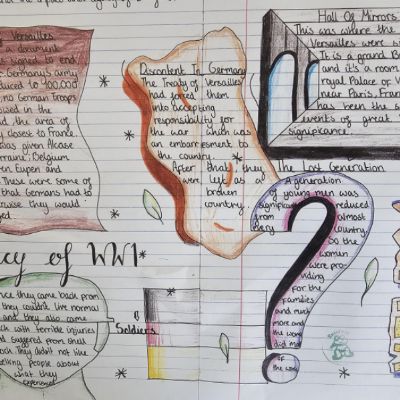 Versailles
a document
signed to end
Germany's army
reduced to 100,000
no German Troops
in the
the area of
closest to France.
was given Alcase
Lorraine. Belgium
Eupen and
These were some of
that Germans had to
otherwise they would
Discontent In Germany
The Treaty of Versailles
had forced them
into accepting
responsibility for
the war which was
an embaressment to
the country.
After that they
were left as a
broken
country.
Hall Of Mirrors
This was where the
Versailles were
It is a grand
and it's a room
royal Palace of
near Paris, France
has been the
events of great
significance.
The Lost Generation
A generation
of young men was
significantly reduced
from almost
every country.
So the
women
were pro-
viding
for the
families
and much
more and
the world
did
of the
cy of WW1
Soldiers
once they came back from
they couldn't live normal
and they also came
back with terrible injuries
and suffered from shell
shock. They didn't not like
telling people about
what they
experienced